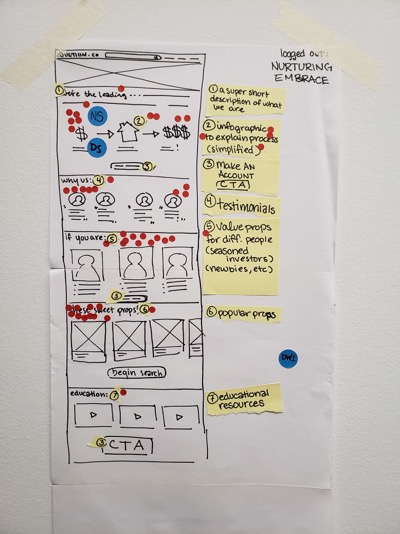 logged out:
NURTURING
EMBRACE
UCTION.CO
① are the leading ...
NS
②
$ → → $$$
DS
③
why us: ④
if you are: ⑤
③
these sweet props! ⑥
begin search
education: ⑦
③ CTA
① a super short
description of what
we are
② infographic
to explain process
(simplified)
③ MAKE AN
ACCOUNT
CTA
④ testimonials
⑤ value props
for diff. people
(seasoned
investors)
(newbies, etc)
⑥ popular props
⑦ educational
resources